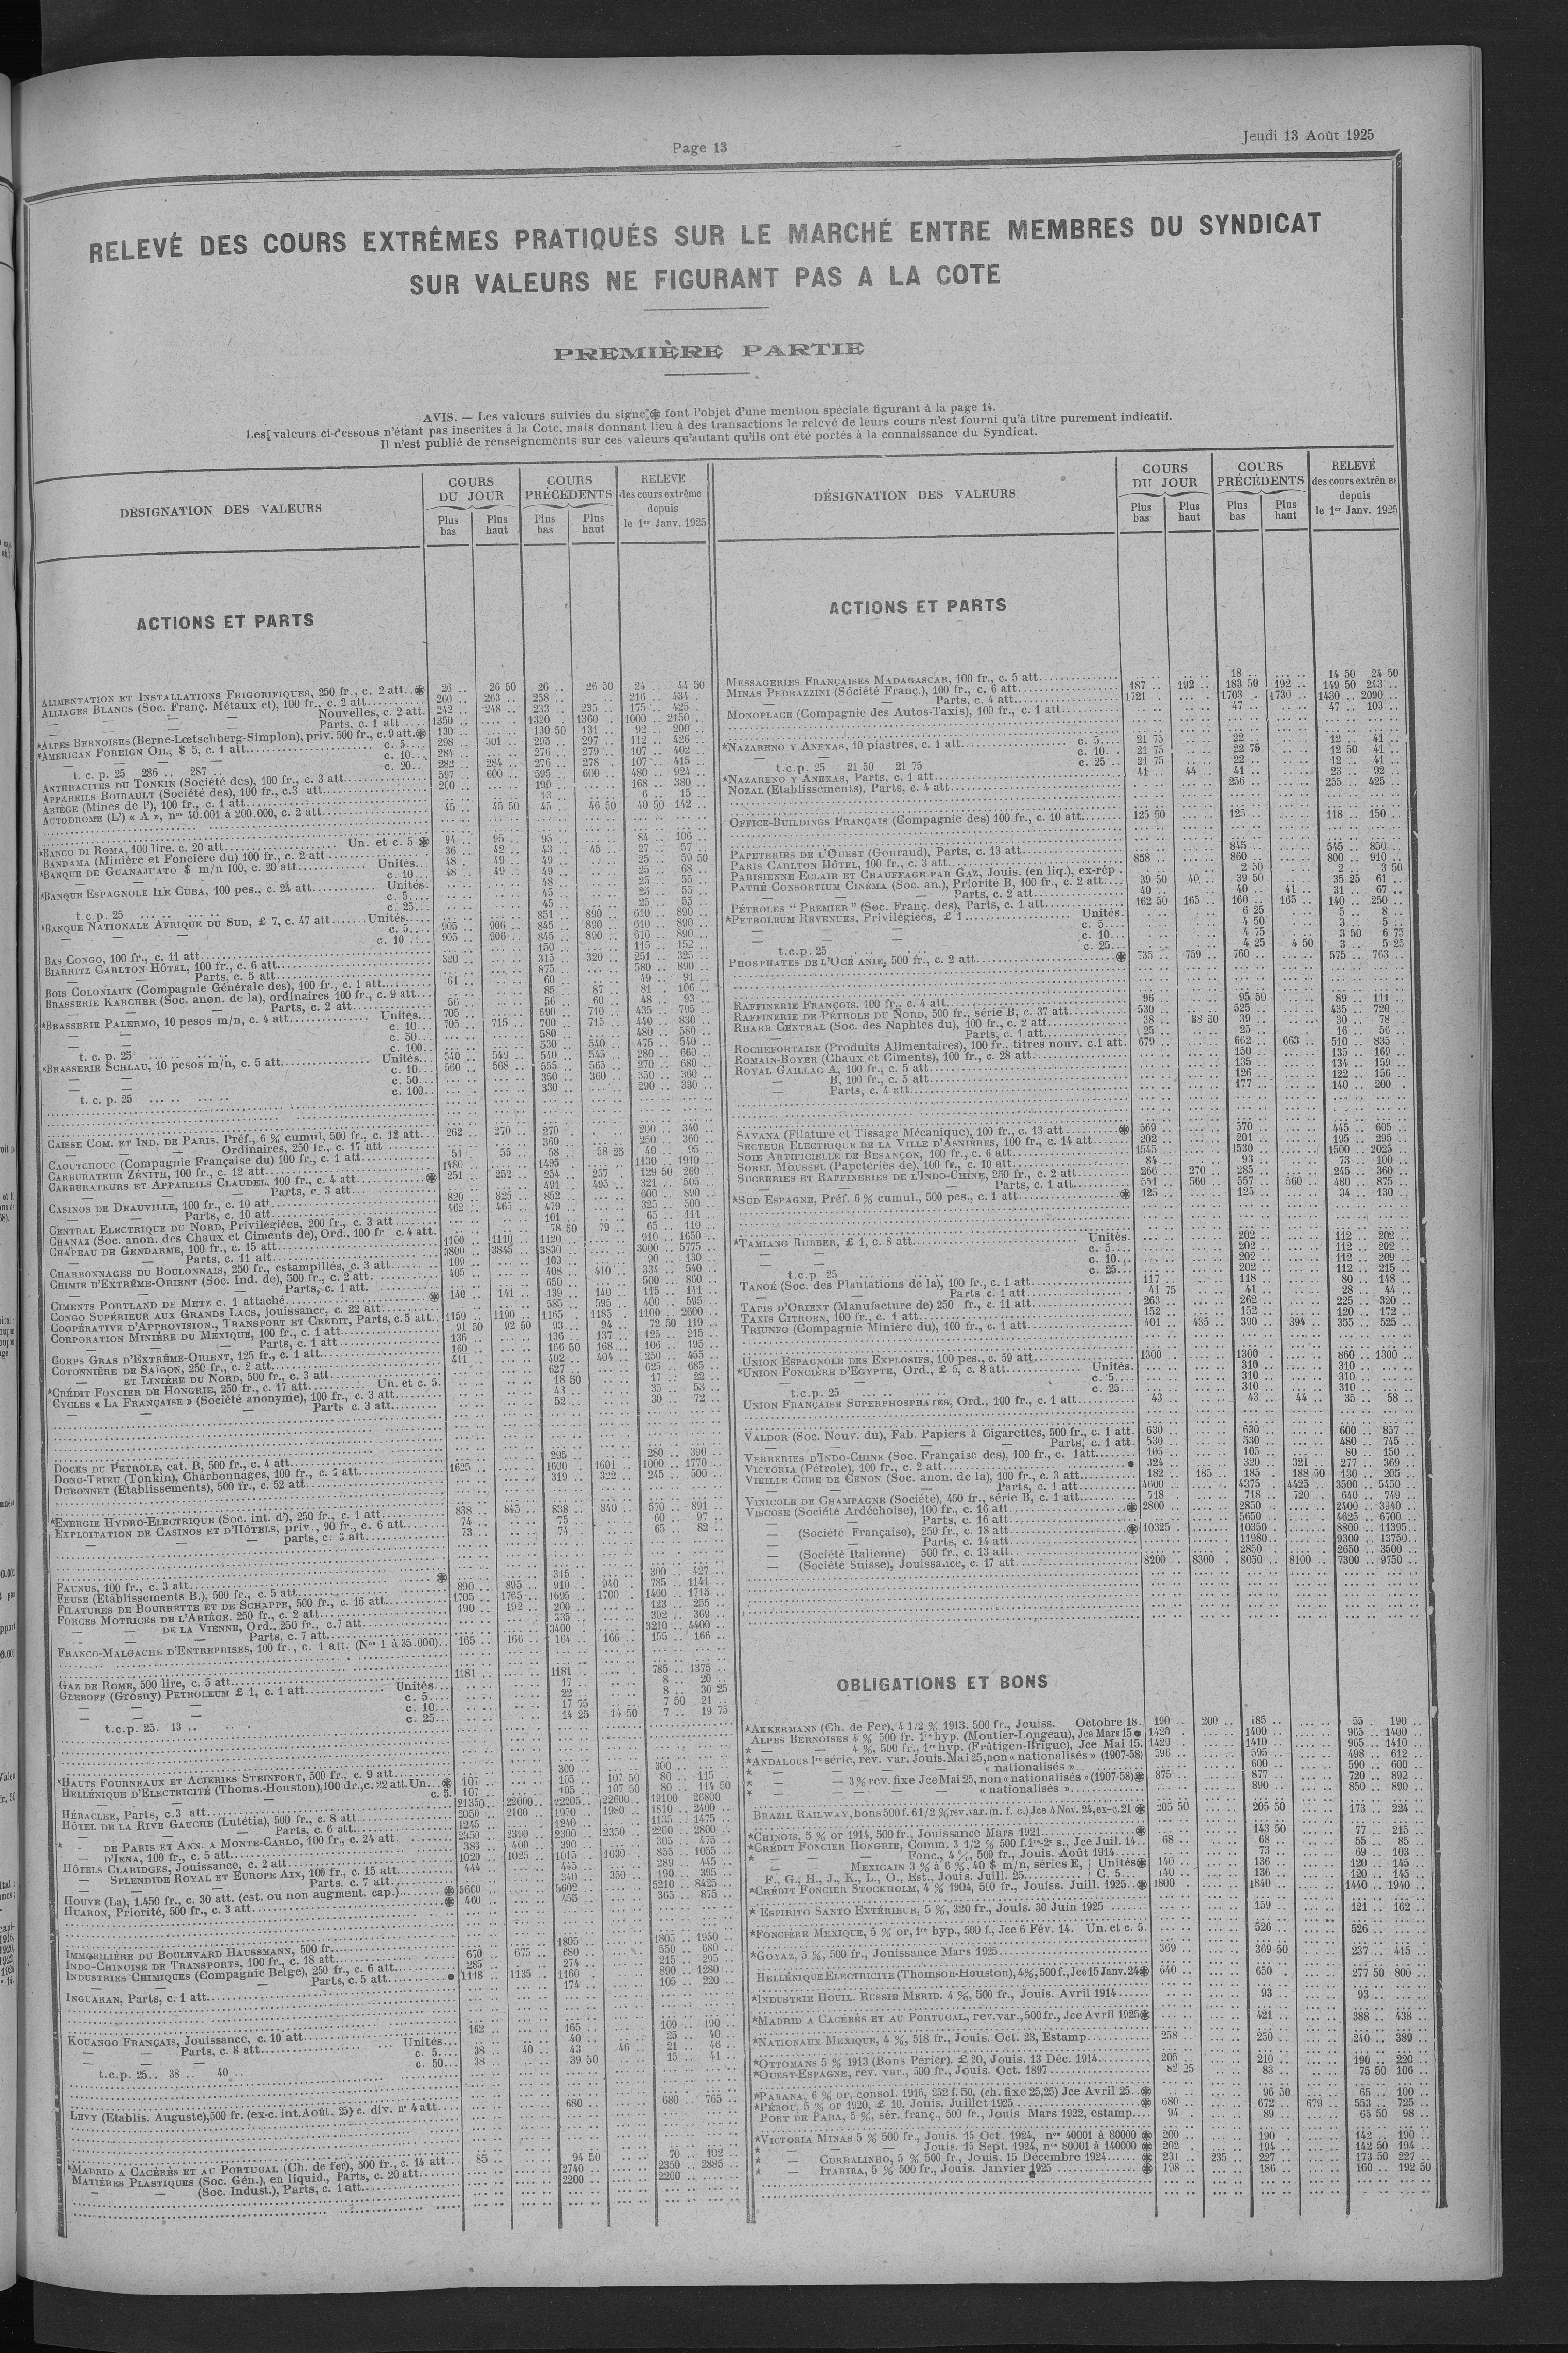 Page 13
Jeudi 13 Août 1925
RELEVÉ DES COURS EXTRÊMES PRATIQUÉS SUR LE MARCHÉ ENTRE MEMBRES DU SYNDICAT
SUR VALEURS NE FIGURANT PAS A LA COTE
PREMIÈRE PARTIE
AVIS. — Les valeurs suivies du signe ❋ font l'objet d'une mention spéciale figurant à la page 14.
Les valeurs ci-dessous n'étant pas inscrites à la Cote, mais donnant lieu à des transactions le relevé de leurs cours n'est fourni qu'à titre purement indicatif.
Il n'est publié de renseignements sur ces valeurs qu'autant qu'ils ont été portés à la connaissance du Syndicat.
DÉSIGNATION DES VALEURS
COURS DU JOUR
Plus bas
Plus haut
COURS PRÉCÉDENTS
Plus bas
Plus haut
RELEVÉ des cours extrême depuis le 1er Janv. 1925
ACTIONS ET PARTS
ALIMENTATION ET INSTALLATIONS FRIGORIFIQUES, 250 fr., c. 2 att..❋ 26 .. 26 50 26 .. 26 50 24 .. 44 50
ALLIAGES BLANCS (Soc. Franç. Métaux et), 100 fr., c. 2 att. 260 .. 263 .. 258 .. 216 .. 434 ..
— — — Nouvelles, c. 2 att. 242 .. 248 .. 233 .. 235 .. 175 .. 425 ..
— — — Parts, c. 1 att. 1350 .. 1320 .. 1360 .. 1000 .. 2150 ..
*ALPES BERNOISES (Berne-Lœtschberg-Simplon), priv. 500 fr., c. 9 att.❋ 130 .. 130 50 131 92 .. 200 ..
*AMERICAN FOREIGN OIL, $ 5, c. 1 att. c. 5 298 .. 301 .. 295 .. 297 .. 112 .. 426 ..
— — c. 10 284 .. 276 .. 279 .. 107 .. 402 ..
— — c. 20 282 .. 284 .. 276 .. 278 .. 107 .. 415 ..
t. c. p. 25 286 .. 287 ..
ANTHRACITES DU TONKIN (Société des), 100 fr., c. 3 att. 597 .. 600 .. 595 .. 600 .. 480 .. 924 ..
APPAREILS BOIRAULT (Société des), 100 fr., c. 3 att. 200 .. 190 .. 168 .. 380 ..
ARIÈGE (Mines de l'), 100 fr., c. 1 att. 13 .. 6 .. 15 ..
AUTODROME (L') « A », nos 40.001 à 200.000, c. 2 att. 45 .. 45 50 45 .. 46 50 40 50 142 ..
*BANCO DI ROMA, 100 lire. c. 20 att. Un. et c. 5 ❋ 94 .. 95 .. 95 .. 84 .. 106 ..
BANDAMA (Minière et Foncière du) 100 fr., c. 2 att 36 .. 42 .. 43 .. 45 .. 27 .. 57 ..
*BANQUE DE GUANAJUATO $ m/n 100, c. 20 att. Unités 48 .. 49 .. 49 .. 25 .. 59 50
c. 10 48 .. 49 .. 49 .. 25 .. 68 ..
*BANQUE ESPAGNOLE ILE CUBA, 100 pes., c. 24 att. Unités. 48 .. 25 .. 55 ..
c. 5 45 .. 25 .. 55 ..
c. 25 45 .. 25 .. 55 ..
t.c.p. 25
*BANQUE NATIONALE AFRIQUE DU SUD, £ 7, c. 47 att. Unités 851 .. 890 .. 610 .. 890 ..
— — c. 5 905 .. 906 .. 845 .. 890 .. 610 .. 890 ..
c. 10 905 .. 906 .. 845 .. 890 .. 610 .. 890 ..
BAS CONGO, 100 fr., c. 11 att. 150 .. 115 .. 152 ..
BIARRITZ CARLTON HÔTEL, 100 fr., c. 6 att. 320 .. 315 .. 320 .. 251 .. 325 ..
— Parts, c. 5 att. 875 .. 580 .. 890 ..
BOIS COLONIAUX (Compagnie Générale des), 100 fr., c. 1 att. 61 .. 60 .. 49 .. 91 ..
BRASSERIE KARCHER (Soc. anon. de la), ordinaires 100 fr., c. 9 att. 85 .. 87 .. 81 .. 106 ..
— — Parts, c. 2 att. 56 .. 56 .. 60 .. 48 .. 93 ..
*BRASSERIE PALERMO, 10 pesos m/n, c. 4 att. Unités 705 .. 690 .. 710 .. 435 .. 795 ..
c. 10 705 .. 715 .. 700 .. 715 .. 440 .. 830 ..
c. 50 580 .. 480 .. 580 ..
c. 100 530 .. 540 .. 475 .. 540 ..
t. c. p. 25
*BRASSERIE SCHLAU, 10 pesos m/n, c. 5 att. Unités 540 .. 549 .. 540 .. 545 .. 280 .. 660 ..
c. 10 560 .. 568 .. 555 .. 565 .. 270 .. 680 ..
c. 50 350 .. 360 .. 350 .. 360 ..
c. 100 330 .. 290 .. 330 ..
t. c. p. 25
CAISSE COM. ET IND. DE PARIS, Préf., 6 % cumul, 500 fr., c. 12 att. 262 .. 270 .. 270 .. 200 .. 340 ..
— — Ordinaires, 250 fr., c. 17 att 360 .. 250 .. 360 ..
CAOUTCHOUC (Compagnie Française du) 100 fr., c. 1 att. 51 .. 55 .. 58 .. 58 25 40 .. 95 ..
CARBURATEUR ZÉNITH, 100 fr., c. 12 att. 1480 .. 1495 .. 1130 .. 1910 ..
CARBURATEURS ET APPAREILS CLAUDEL, 100 fr., c. 4 att. ❋ 251 .. 252 .. 254 .. 257 .. 129 50 260 ..
— — Parts, c. 3 att. 491 .. 495 .. 321 .. 505 ..
CASINOS DE DEAUVILLE, 100 fr., c. 10 att 820 .. 825 .. 852 .. 600 .. 890 ..
— Parts, c. 10 att. 462 .. 465 .. 479 .. 325 .. 500 ..
CENTRAL ELECTRIQUE DU NORD, Privilégiées, 200 fr., c. 3 att. 101 .. 65 .. 111 ..
CHANAZ (Soc. anon. des Chaux et Ciments de), Ord., 100 fr c. 4 att. 78 50 79 .. 65 .. 110 ..
CHAPEAU DE GENDARME, 100 fr., c. 15 att. 1100 .. 1110 .. 1120 .. 910 .. 1650 ..
— Parts, c. 11 att. 3800 .. 3845 .. 3830 .. 3000 .. 5775 ..
CHARBONNAGES DU BOULONNAIS, 250 fr., estampillés, c. 3 att. 109 .. 109 .. 90 .. 130 ..
CHIMIE D'EXTRÊME-ORIENT (Soc. Ind. de), 500 fr., c. 2 att. 405 .. 408 .. 410 .. 334 .. 540 ..
— — Parts, c. 1 att. 650 .. 500 .. 860 ..
CIMENTS PORTLAND DE METZ c. 1 attaché ❋ 140 .. 141 .. 139 .. 140 .. 115 .. 141 ..
CONGO SUPÉRIEUR AUX GRANDS LACS, jouissance, c. 22 att. 585 .. 595 .. 400 .. 595 ..
COOPÉRATIVE D'APPROVISION., TRANSPORT ET CRÉDIT, Parts, c. 5 att. 1150 .. 1190 .. 1165 .. 1185 .. 1100 .. 2600 ..
CORPORATION MINIÈRE DU MEXIQUE, 100 fr., c. 1 att. 91 50 92 50 93 .. 94 .. 72 50 119 ..
— — Parts, c. 1 att 136 .. 136 .. 137 .. 125 .. 215 ..
CORPS GRAS D'EXTRÊME-ORIENT, 125 fr., c. 1 att. 160 .. 166 50 168 .. 106 .. 195 ..
COTONNIÈRE DE SAÏGON, 250 fr., c. 2 att. 411 .. 402 .. 404 .. 250 .. 455 ..
— ET LINIÈRE DU NORD, 500 fr., c. 3 att. 627 .. 625 .. 685 ..
*CRÉDIT FONCIER DE HONGRIE, 250 fr., c. 17 att. Un. et c. 5. 18 50 17 .. 22 ..
CYCLES « LA FRANÇAISE » (Société anonyme), 100 fr., c. 3 att. 43 .. 35 .. 53 ..
— — — Parts c. 3 att. 52 .. 30 .. 72 ..
DOCKS DU PÉTROLE, cat. B, 500 fr., c. 4 att. 295 .. 280 .. 390 ..
DONG-TRIEU (Tonkin), Charbonnages, 100 fr., c. 2 att. 1625 .. 1600 .. 1601 .. 1000 .. 1770 ..
DUBONNET (Etablissements), 500 fr., c. 52 att. 319 .. 322 .. 245 .. 500 ..
*ENERGIE HYDRO-ELECTRIQUE (Soc. int. d'), 250 fr., c. 1 att. 838 .. 845 .. 838 .. 840 .. 570 .. 891 ..
EXPLOITATION DE CASINOS ET D'HÔTELS, priv., 90 fr., c. 6 att. 74 .. 75 .. 60 .. 97 ..
— — — parts, c. 3 att. 73 .. 74 .. 65 .. 82 ..
FAUNUS, 100 fr., c. 3 att. ❋ 315 .. 300 .. 427 ..
FEUSE (Etablissements B.), 500 fr., c. 5 att. 890 .. 895 .. 910 .. 940 .. 785 .. 1141 ..
FILATURES DE BOURRETTE ET DE SCHAPPE, 500 fr., c. 16 att. 1705 .. 1765 .. 1695 .. 1700 .. 1400 .. 1715 ..
FORCES MOTRICES DE L'ARIÈGE. 250 fr., c. 2 att. 190 .. 192 .. 200 .. 123 .. 255 ..
— — DE LA VIENNE, Ord., 250 fr., c. 7 att. 335 .. 302 .. 369 ..
— — Parts, c. 7 att. 3400 .. 3210 .. 4400 ..
FRANCO-MALGACHE D'ENTREPRISES, 100 fr., c. 1 att. (Nos 1 à 35.000). 165 .. 166 .. 164 .. 166 .. 155 .. 166 ..
GAZ DE ROME, 500 lire, c. 5 att. 1181 .. 1181 .. 785 .. 1375 ..
GLEBOFF (Grosny) PETROLEUM £ 1, c. 1 att. Unités 17 .. 8 .. 20 ..
— — — c. 5 22 .. 8 .. 30 25
— — — c. 10 17 75 7 50 21 ..
— — — c. 25 14 25 14 50 7 .. 19 75
t.c.p. 25. 13 ..
*HAUTS FOURNEAUX ET ACIERIES STEINFORT, 500 fr., c. 9 att. 300 .. 300 ..
HELLÉNIQUE D'ELECTRICITÉ (Thoms.-Houston), 100 dr., c. 22 att. Un. ❋ 107 .. 105 .. 107 50 80 .. 115 ..
— — c. 5. 107 .. 105 .. 107 50 80 .. 114 50
HÉRACLEE, Parts, c. 3 att. 21350 .. 22000 .. 22205 .. 22600 .. 19100 .. 26800
HÔTEL DE LA RIVE GAUCHE (Lutétia), 500 fr., c. 8 att. 2050 .. 2100 .. 1970 .. 1980 .. 1810 .. 2400 ..
— — Parts, c. 6 att. 1245 .. 1240 .. 1135 .. 1475 ..
* - DE PARIS ET ANN. A MONTE-CARLO, 100 fr., c. 24 att. 2350 .. 2390 .. 2300 .. 2350 .. 2200 .. 2800 ..
— D'IENA, 100 fr., c. 5 att. 386 .. 400 .. 390 .. 305 .. 475 ..
HÔTELS CLARIDGES, Jouissance, c. 2 att. 1020 .. 1025 .. 1015 .. 1030 .. 855 .. 1055 ..
— SPLENDIDE ROYAL ET EUROPE AIX, 100 fr., c. 15 att. 444 .. 445 .. 289 .. 445 ..
— — Parts, c. 7 att. 340 .. 350 .. 190 .. 395 ..
HOUVE (La), 1.450 fr., c. 30 att. (est. ou non augment. cap.) ❋ 5600 .. 5602 .. 5210 .. 8425 ..
HUARON, Priorité, 500 fr., c. 3 att. ❋ 460 .. 455 .. 365 .. 875 ..
IMMOBILIÈRE DU BOULEVARD HAUSSMANN, 500 fr. 1805 .. 1805 .. 1950 ..
INDO-CHINOISE DE TRANSPORTS, 100 fr., c. 18 att. 670 .. 675 .. 680 .. 550 .. 680 ..
INDUSTRIES CHIMIQUES (Compagnie Belge), 250 fr., c. 6 att. 285 .. 274 .. 215 .. 295 ..
— — Parts, c. 5 att. ● 1118 .. 1135 .. 1160 .. 890 .. 1280 ..
INGUARAN, Parts, c. 1 att. 174 .. 105 .. 220 ..
KOUANGO FRANÇAIS, Jouissance, c. 10 att. 162 .. 165 .. 109 .. 190 ..
— Parts, c. 8 att. Unités 40 .. 25 .. 40 ..
— — c. 5 38 .. 40 .. 43 .. 46 .. 21 .. 46 ..
c. 50 38 .. 39 50 15 .. 41 ..
t.c.p. 25.. 38 .. 40 ..
LEVY (Etablis. Auguste), 500 fr. (ex-c. int. Août. 25) c. div. n° 4 att. 680 .. 680 .. 765 ..
*MADRID A CACÉRÈS ET AU PORTUGAL (Ch. de fer), 500 fr., c. 14 att. 85 .. 94 50 70 .. 102 ..
MATIÈRES PLASTIQUES (Soc. Gén.), en liquid., Parts, c. 20 att. 2740 .. 2350 .. 2885 ..
— (Soc. Indust.), Parts, c. 1 att. 2200 .. 2200 ..
DÉSIGNATION DES VALEURS
COURS DU JOUR
Plus bas
Plus haut
COURS PRÉCÉDENTS
Plus bas
Plus haut
RELEVÉ des cours extrêmes depuis le 1er Janv. 1925
ACTIONS ET PARTS
MESSAGERIES FRANÇAISES MADAGASCAR, 100 fr., c. 5 att. 18 .. 14 50 24 50
MINAS PEDRAZZINI (Société Franç.), 100 fr., c. 6 att. 187 .. 192 .. 183 50 192 .. 149 50 243 ..
— — Parts, c. 4 att. 1721 .. 1703 .. 1730 .. 1430 .. 2090 ..
MONOPLACE (Compagnie des Autos-Taxis), 100 fr., c. 1 att. 47 .. 47 .. 103 ..
*NAZARENO Y ANEXAS, 10 piastres, c. 1 att. c. 5 21 75 22 .. 12 .. 41 ..
— — c. 10 21 75 22 75 12 50 41 ..
c. 25 21 75 22 .. 12 .. 41 ..
t.c.p. 25 21 50 21 75
*NAZARENO Y ANEXAS, Parts, c. 1 att. 41 .. 44 .. 41 .. 23 .. 92 ..
NOZAL (Etablissements), Parts, c. 4 att. 256 .. 255 .. 425 ..
OFFICE-BUILDINGS FRANÇAIS (Compagnie des) 100 fr., c. 10 att. 125 50 125 .. 118 .. 150 ..
PAPETERIES DE L'OUEST (Gouraud), Parts, c. 13 att. 845 .. 545 .. 850 ..
PARIS CARLTON HÔTEL, 100 fr., c. 3 att. 858 .. 860 .. 800 .. 910 ..
PARISIENNE ECLAIR ET CHAUFFAGE PAR GAZ, Jouis. (en liq.), ex-rép. 2 50 2 .. 3 50
PATHÉ CONSORTIUM CINÉMA (Soc. an.), Priorité B, 100 fr., c. 2 att. 39 50 40 .. 39 50 35 25 61 ..
— — Parts, c. 2 att. 40 .. 40 .. 41 .. 31 .. 67 ..
PÉTROLES " PREMIER " (Soc. Franç. des), Parts, c. 1 att. 162 50 165 .. 160 .. 165 .. 140 .. 250 ..
*PETROLEUM REVENUES, Privilégiées, £ 1 Unités. 6 25 5 .. 8 ..
— — — c. 5 4 50 3 .. 5 ..
— — — c. 10 4 75 3 50 6 75
c. 25 4 25 4 50 3 .. 5 25
t.c.p. 25
PHOSPHATES DE L'OCÉANIE, 500 fr., c. 2 att. ❋ 735 .. 759 .. 760 .. 575 .. 763 ..
RAFFINERIE FRANÇOIS, 100 fr., c. 4 att. 96 .. 95 50 89 .. 111 ..
RAFFINERIE DE PÉTROLE DU NORD, 500 fr., série B, c. 37 att. 530 .. 525 .. 435 .. 720 ..
RHARB CENTRAL (Soc. des Naphtes du), 100 fr., c. 2 att. 38 .. 38 50 39 .. 30 .. 78 ..
— — Parts, c. 1 att. 25 .. 25 .. 16 .. 56 ..
ROCHEFORTAISE (Produits Alimentaires), 100 fr., titres nouv. c. 1 att. 679 .. 662 .. 663 .. 510 .. 835 ..
ROMAIN-BOYER (Chaux et Ciments), 100 fr., c. 28 att. 150 .. 135 .. 169 ..
ROYAL GAILLAC A, 100 fr., c. 5 att. 135 .. 134 .. 159 ..
— B, 100 fr., c. 5 att. 126 .. 122 .. 156 ..
— Parts, c. 4 att. 177 .. 140 .. 200 ..
SAVANA (Filature et Tissage Mécanique), 100 fr., c. 13 att ❋ 569 .. 570 .. 445 .. 605 ..
SECTEUR ELECTRIQUE DE LA VILLE D'ASNIÈRES, 100 fr., c. 14 att. 202 .. 201 .. 195 .. 295 ..
SOIE ARTIFICIELLE DE BESANÇON, 100 fr., c. 6 att. 1545 .. 1530 .. 1500 .. 2025 ..
SOREL MOUSSEL (Papeteries de), 100 fr., c. 10 att. 84 .. 93 .. 73 .. 100 ..
SUCRERIES ET RAFFINERIES DE L'INDO-CHINE, 250 fr., c. 2 att. 266 .. 270 .. 285 .. 245 .. 360 ..
— — Parts, c. 1 att. 551 .. 560 .. 557 .. 560 .. 480 .. 875 ..
*SUD ESPAGNE, Préf. 6 % cumul., 500 pes., c. 1 att. ❋ 125 .. 125 .. 34 .. 130 ..
*TAMIANG RUBBER, £ 1, c. 8 att. Unités. 202 .. 112 .. 202 ..
— — c. 5 202 .. 112 .. 202 ..
— — c. 10 202 .. 112 .. 209 ..
c. 25 202 .. 112 .. 215 ..
t.c.p. 25
TANOÉ (Soc. des Plantations de la), 100 fr., c. 1 att. 117 .. 118 .. 80 .. 148 ..
— — Parts c. 1 att. 41 75 41 .. 28 .. 44 ..
TAPIS D'ORIENT (Manufacture de) 250 fr., c. 11 att. 263 .. 262 .. 225 .. 320 ..
TAXIS CITROEN, 100 fr., c. 1 att. 152 .. 152 .. 120 .. 172 ..
TRIUNFO (Compagnie Minière du), 100 fr., c. 1 att. 401 .. 435 .. 390 .. 394 .. 355 .. 525 ..
UNION ESPAGNOLE DES EXPLOSIFS, 100 pes., c. 59 att. 1300 .. 1300 .. 860 .. 1300 ..
*UNION FONCIÈRE D'EGYPTE, Ord., £ 5, c. 8 att. Unités. 310 .. 310 ..
— — — c. 5 310 .. 310 ..
c. 25 310 .. 310 ..
t.c.p. 25
UNION FRANÇAISE SUPERPHOSPHATES, Ord., 100 fr., c. 1 att. 43 .. 43 .. 44 .. 35 .. 58 ..
VALDOR (Soc. Nouv. du), Fab. Papiers à Cigarettes, 500 fr., c. 1 att. 630 .. 630 .. 600 .. 857 ..
— — — Parts, c. 1 att. 530 .. 530 .. 480 .. 745 ..
VERRERIES D'INDO-CHINE (Soc. Française des), 100 fr., c. 1 att. 105 .. 105 .. 80 .. 150 ..
VICTORIA (Pétrole), 100 fr., c. 2 att. ● 324 .. 320 .. 321 .. 277 .. 369 ..
VIEILLE CURE DE CENON (Soc. anon. de la), 100 fr., c. 3 att. 182 .. 185 .. 185 .. 188 50 130 .. 205 ..
— — — Parts, c. 1 att. 4600 .. 4375 .. 4425 .. 3500 .. 5450 ..
VINICOLE DE CHAMPAGNE (Société), 450 fr., série B, c. 1 att. 718 .. 718 .. 720 .. 640 .. 749 ..
VISCOSE (Société Ardéchoise), 100 fr., c. 16 att. ❋ 2800 .. 2850 .. 2400 .. 3940 ..
— — Parts, c. 16 att. 5650 .. 4625 .. 6700 ..
— (Société Française), 250 fr., c. 18 att. ❋ 10325 .. 10350 .. 8800 .. 11395 ..
— — Parts, c. 14 att. 11980 .. 9300 .. 13750 ..
— (Société Italienne) 500 fr., c. 13 att. 2850 .. 2650 .. 3500 ..
— (Société Suisse), Jouissance, c. 17 att. 8200 .. 8300 .. 8050 .. 8100 .. 7300 .. 9750 ..
OBLIGATIONS ET BONS
*AKKERMANN (Ch. de Fer), 4 1/2 % 1913, 500 fr., Jouiss. Octobre 18. 190 .. 200 .. 185 .. 55 .. 190 ..
ALPES BERNOISES 4 % 500 fr. 1re hyp. (Moutier-Longeau), Jce Mars 15 ● 1420 .. 1400 .. 965 .. 1400 ..
* — — 4 %, 500 fr., 1re hyp. (Frütigen-Brigue), Jce Mai 15. 1420 .. 1410 .. 965 .. 1410 ..
*ANDALOUS 1re série, rev. var. Jouis. Mai 25, non « nationalisés » (1907-58) 596 .. 595 .. 498 .. 612 ..
* — — — « nationalisés » 600 .. 590 .. 600 ..
* — — 3 % rev. fixe Jce Mai 25, non « nationalisés » (1907-58) ❋ 875 .. 877 .. 720 .. 892 ..
* — — — « nationalisés » 890 .. 850 .. 890 ..
BRAZIL RAILWAY, bons 500 f. 6 1/2 % rev. var. (n. f. c.) Jce 4 Nov. 24, ex-c. 21 ❋ 205 50 205 50 173 .. 224 ..
*CHINOIS, 5 % or 1914, 500 fr., Jouissance Mars 1921 ❋ 143 50 77 .. 215 ..
*CRÉDIT FONCIER HONGRIE, Comm. 3 1/2 % 500 f. 1re-2e s., Jce Juil. 14 68 .. 68 .. 55 .. 85 ..
* — — Fonc., 4 %, 500 fr., Jouis. Août 1914 73 .. 69 .. 103 ..
— — MEXICAIN 3 % à 6 %, 40 $ m/n, séries E, Unités ❋ 140 .. 136 .. 120 .. 145 ..
F., G., H., J., K., L., O., Est., Jouis. Juill. 25 C. 5 140 .. 136 .. 120 .. 145 ..
*CRÉDIT FONCIER STOCKHOLM, 4 % 1904, 500 fr., Jouiss. Juill. 1925 ❋ 1800 .. 1840 .. 1440 .. 1940 ..
* ESPIRITO SANTO EXTÉRIEUR, 5 %, 320 fr., Jouis. 30 Juin 1925 159 .. 121 .. 162 ..
*FONCIÈRE MEXIQUE, 5 % or, 1re hyp., 500 f., Jce 6 Fév. 14. Un. et c. 5. 526 .. 526 ..
*GOYAZ, 5 %, 500 fr., Jouissance Mars 1925 369 .. 369 50 237 .. 415 ..
HELLÉNIQUE ELECTRICITÉ (Thomson-Houston), 4 %, 500 f., Jce 15 Janv. 24 ❋ 640 .. 650 .. 277 50 800 ..
*INDUSTRIE HOUIL. RUSSIE MERID. 4 %, 500 fr., Jouis. Avril 1914 93 .. 93 ..
*MADRID A CACÉRÈS ET AU PORTUGAL, rev. var., 500 fr., Jce Avril 1925 ❋ 421 .. 388 .. 438 ..
*NATIONAUX MEXIQUE, 4 %, 518 fr., Jouis. Oct. 23, Estamp. 258 .. 250 .. 240 .. 389 ..
*OTTOMANS 5 % 1913 (Bons Périer). £ 20, Jouis. 13 Déc. 1914 205 .. 210 .. 190 .. 220 ..
*OUEST-ESPAGNE, rev. var., 500 fr., Jouis. Oct. 1897 82 25 83 .. 75 50 106 ..
*PARANA, 6 % or, consol. 1916, 252 f. 50, (ch. fixe 25,25) Jce Avril 25 ❋ 96 50 65 .. 100 ..
*PÉROU, 5 % or 1920, £ 10, Jouis. Juillet 1925 ❋ 680 .. 672 .. 679 .. 553 .. 725 ..
PORT DE PARA, 5 %, sér. franç., 500 fr., Jouis Mars 1922, estamp. 94 .. 89 .. 65 50 98 ..
*VICTORIA MINAS 5 % 500 fr., Jouis. 15 Oct. 1924, nos 40001 à 80000 ❋ 200 .. 190 .. 142 .. 190 ..
* — — Jouis. 15 Sept. 1924, nos 80001 à 140000 ❋ 202 .. 194 .. 142 50 194 ..
* — CURRALINHO, 5 % 500 fr., Jouis. 15 Décembre 1924 ❋ 231 .. 235 .. 227 .. 173 50 227 ..
* — ITABIRA, 5 % 500 fr., Jouis. Janvier 1925 ❋ 198 .. 186 .. 160 .. 192 50